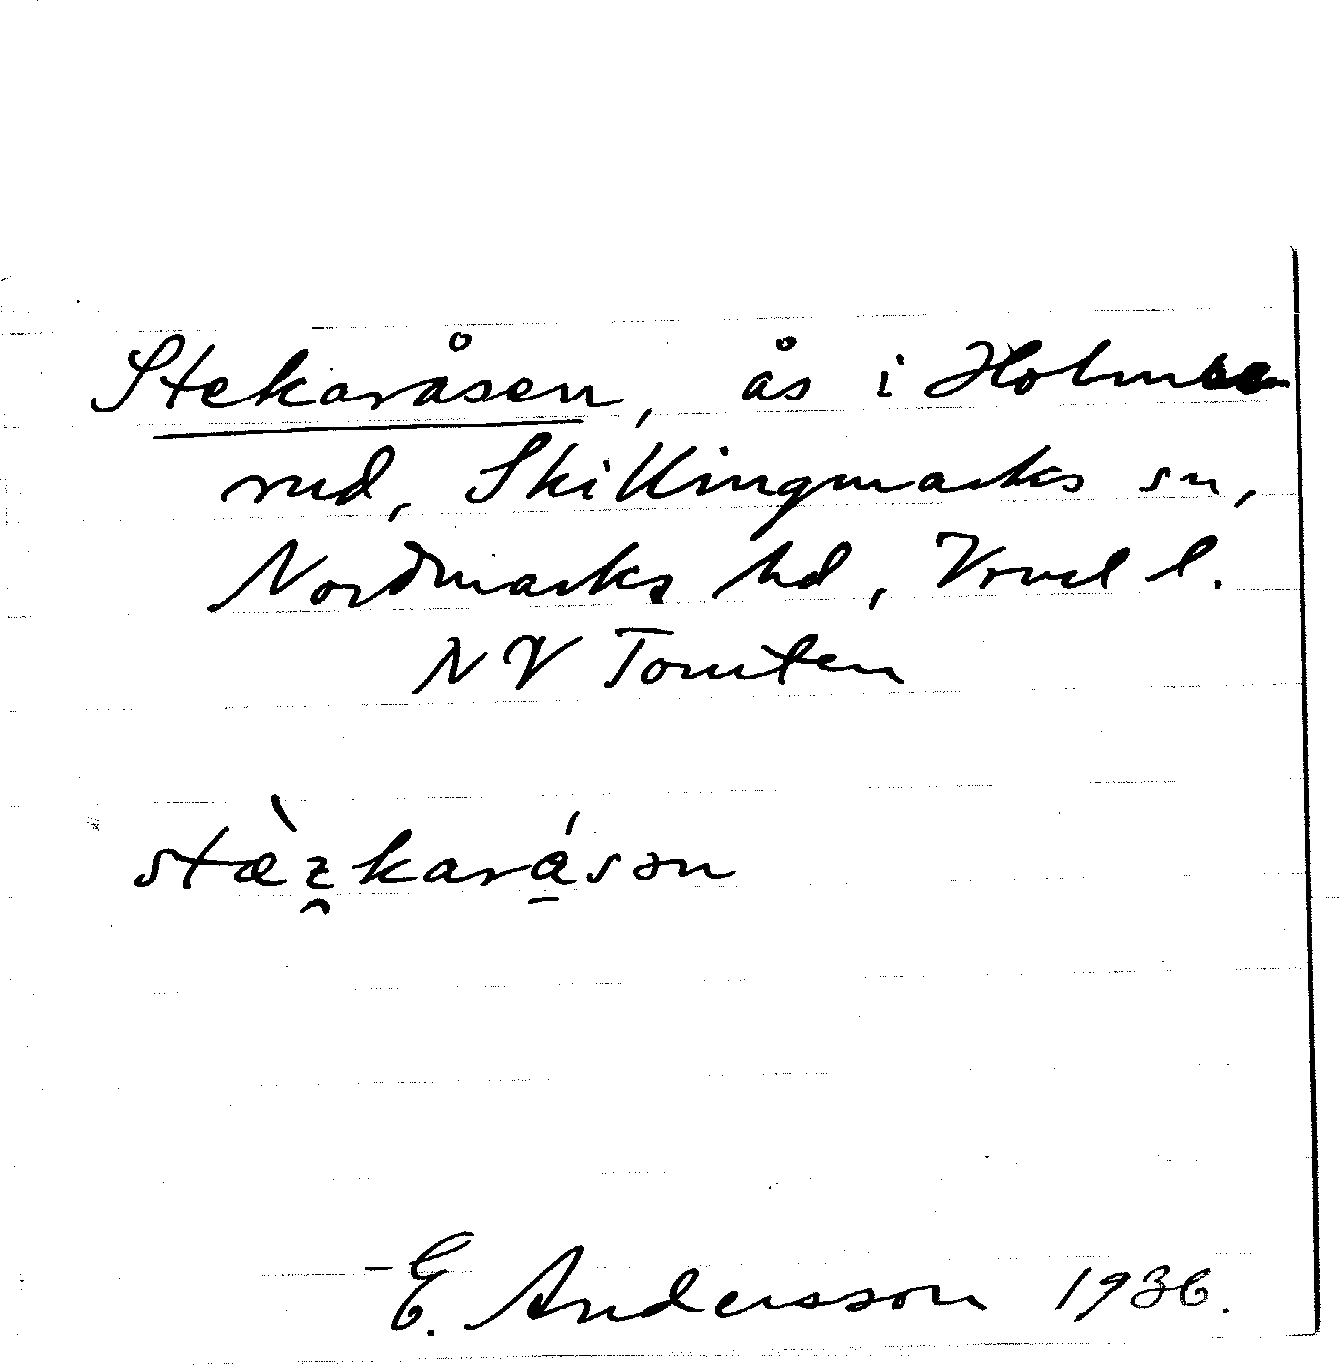 Stekaråsen, ås i Holme
rud, Skillingmarks sn,
Nordmarks hd, Vrml l.
N V Tomten
stæ̀z̯kará̱sən
E. Andersson 1936.